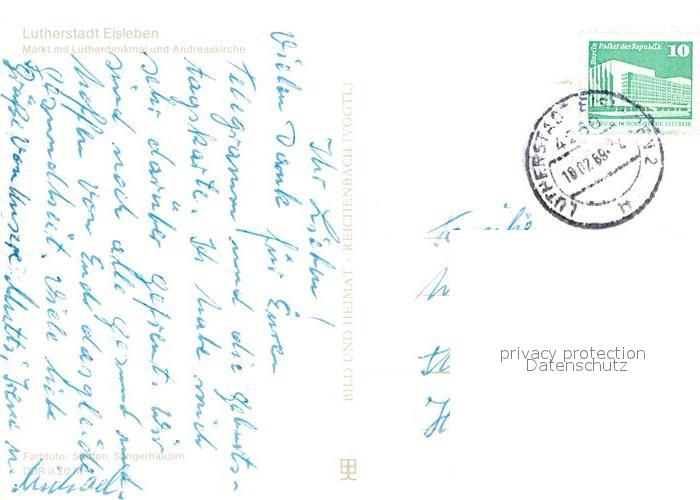 Lutherstadt Eisleben
Markt mit Lutherdenkmal und Andreaskirche
Ihr Lieben!
Vielen Dank für Euren
Telegramm und die Geburts-
tagskarte. Ich habe mich
sehr darüber gefreut. Wir
sind noch alle gesund und
hoffen von Euch dasgleiche
Gesundheit. Viele liebe
Grüße von unsere Mutti, Irene u.
Michael.
Farbfoto: Sangerhausen
DDR 0,20 M
BILD UND HEIMAT · REICHENBACH (VOGTL)
Berlin Palast der Republik 10
DEUTSCHE DEMOKRATISCHE REPUBLIK
LUTHERSTADT EISLEBEN 2
4250
18.02.89
u
Familie
privacy protection
Datenschutz